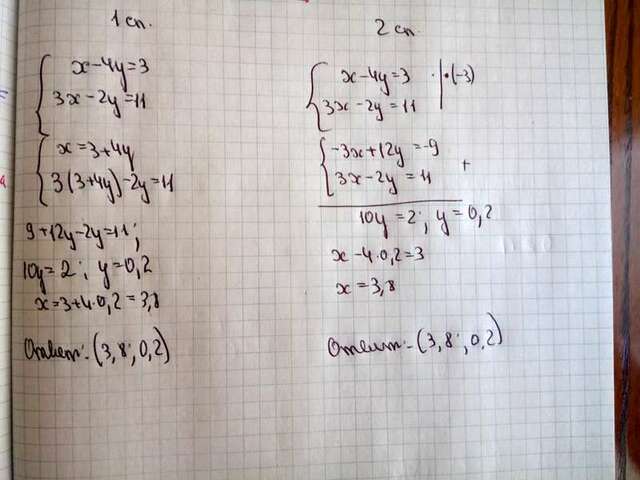 1 сп.
x-4y=3
3x-2y=11
x=3+4y
3(3+4y)-2y=11
9+12y-2y=11;
10y=2; y=0,2
x=3+4·0,2=3,8
Ответ:(3,8;0,2)
2 сп.
x-4y=3 |·(-3)
3x-2y=11
-3x+12y=-9
3x-2y=11 +
10y=2; y=0,2
x-4·0,2=3
x=3,8
Ответ:-(3,8;0,2)